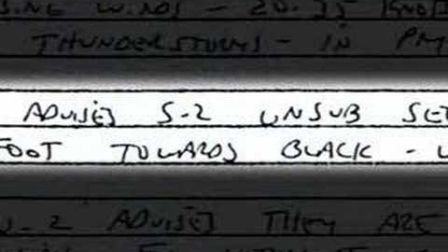 WINDS - 20-35 KNOT
THUNDERSTORMS - IN PM
ADVISES S-2 UNSUB SE
FOOT TOWARDS BLACK -
S-2 ADVISES THEY ARE